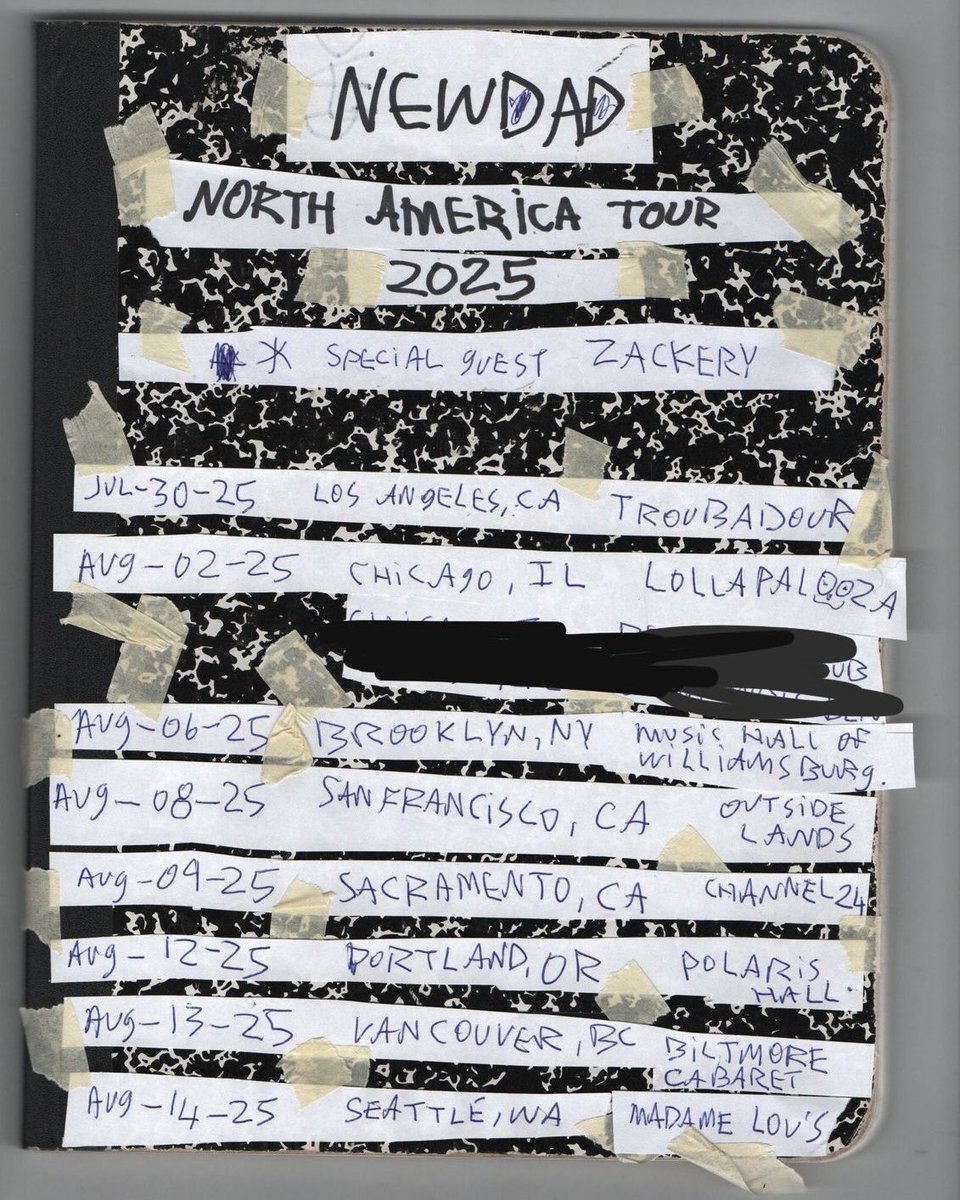 NEWDAD
NORTH AMERICA TOUR
2025
* SPECIAL GUEST ZACKERY
JUL-30-25 LOS ANGELES, CA TROUBADOUR
AUG-02-25 CHICAGO, IL LOLLAPALOOZA
UB
AUG-06-25 BROOKLYN, NY MUSIC HALL OF
WILLIAMSBURG.
AUG-08-25 SAN FRANCISCO, CA OUTSIDE
LANDS
AUG-09-25 SACRAMENTO, CA CHANNEL 24
AUG-12-25 PORTLAND, OR POLARIS
HALL.
AUG-13-25 VANCOUVER, BC BILTMORE
CABARET
AUG-14-25 SEATTLE, WA MADAME LOU'S